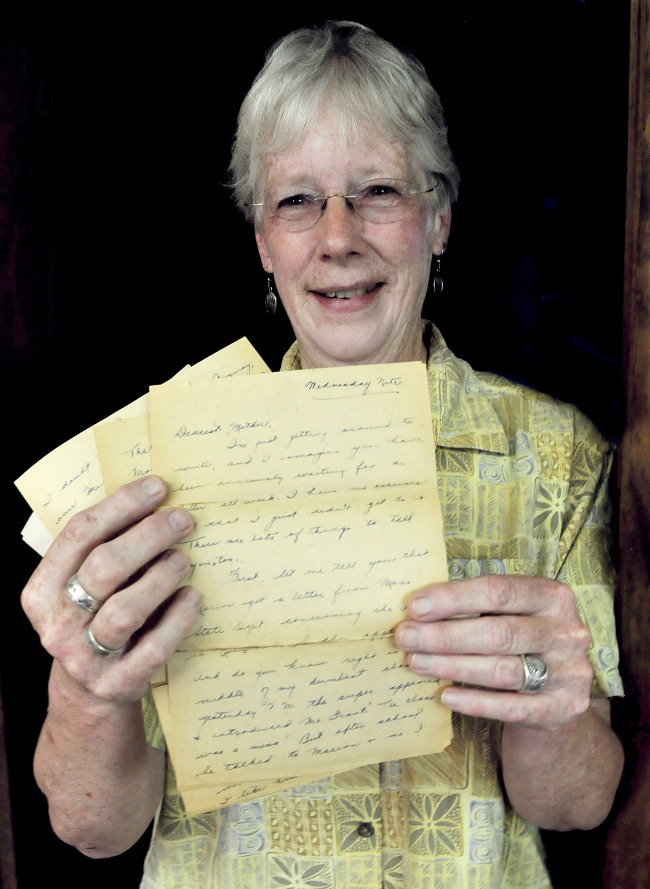 Conway,
Wednesday Nite
Dearest Mother,
I'm just getting around to
write, and I imagine you have
been anxiously waiting for a
all week. I have no excuse
that I just didn't get to it
There are lots of things to tell
you, too.
First, let me tell you that
Marion got a letter from Mass
State Dept concerning the
she
And do you know right in
middle of my dumbest class
yesterday P.M. the super. appeared
& introduced Mr. Grant. The class
was a mess! But after school
he talked to Marion & me I
I like
The
Mo
I doubt
over Me